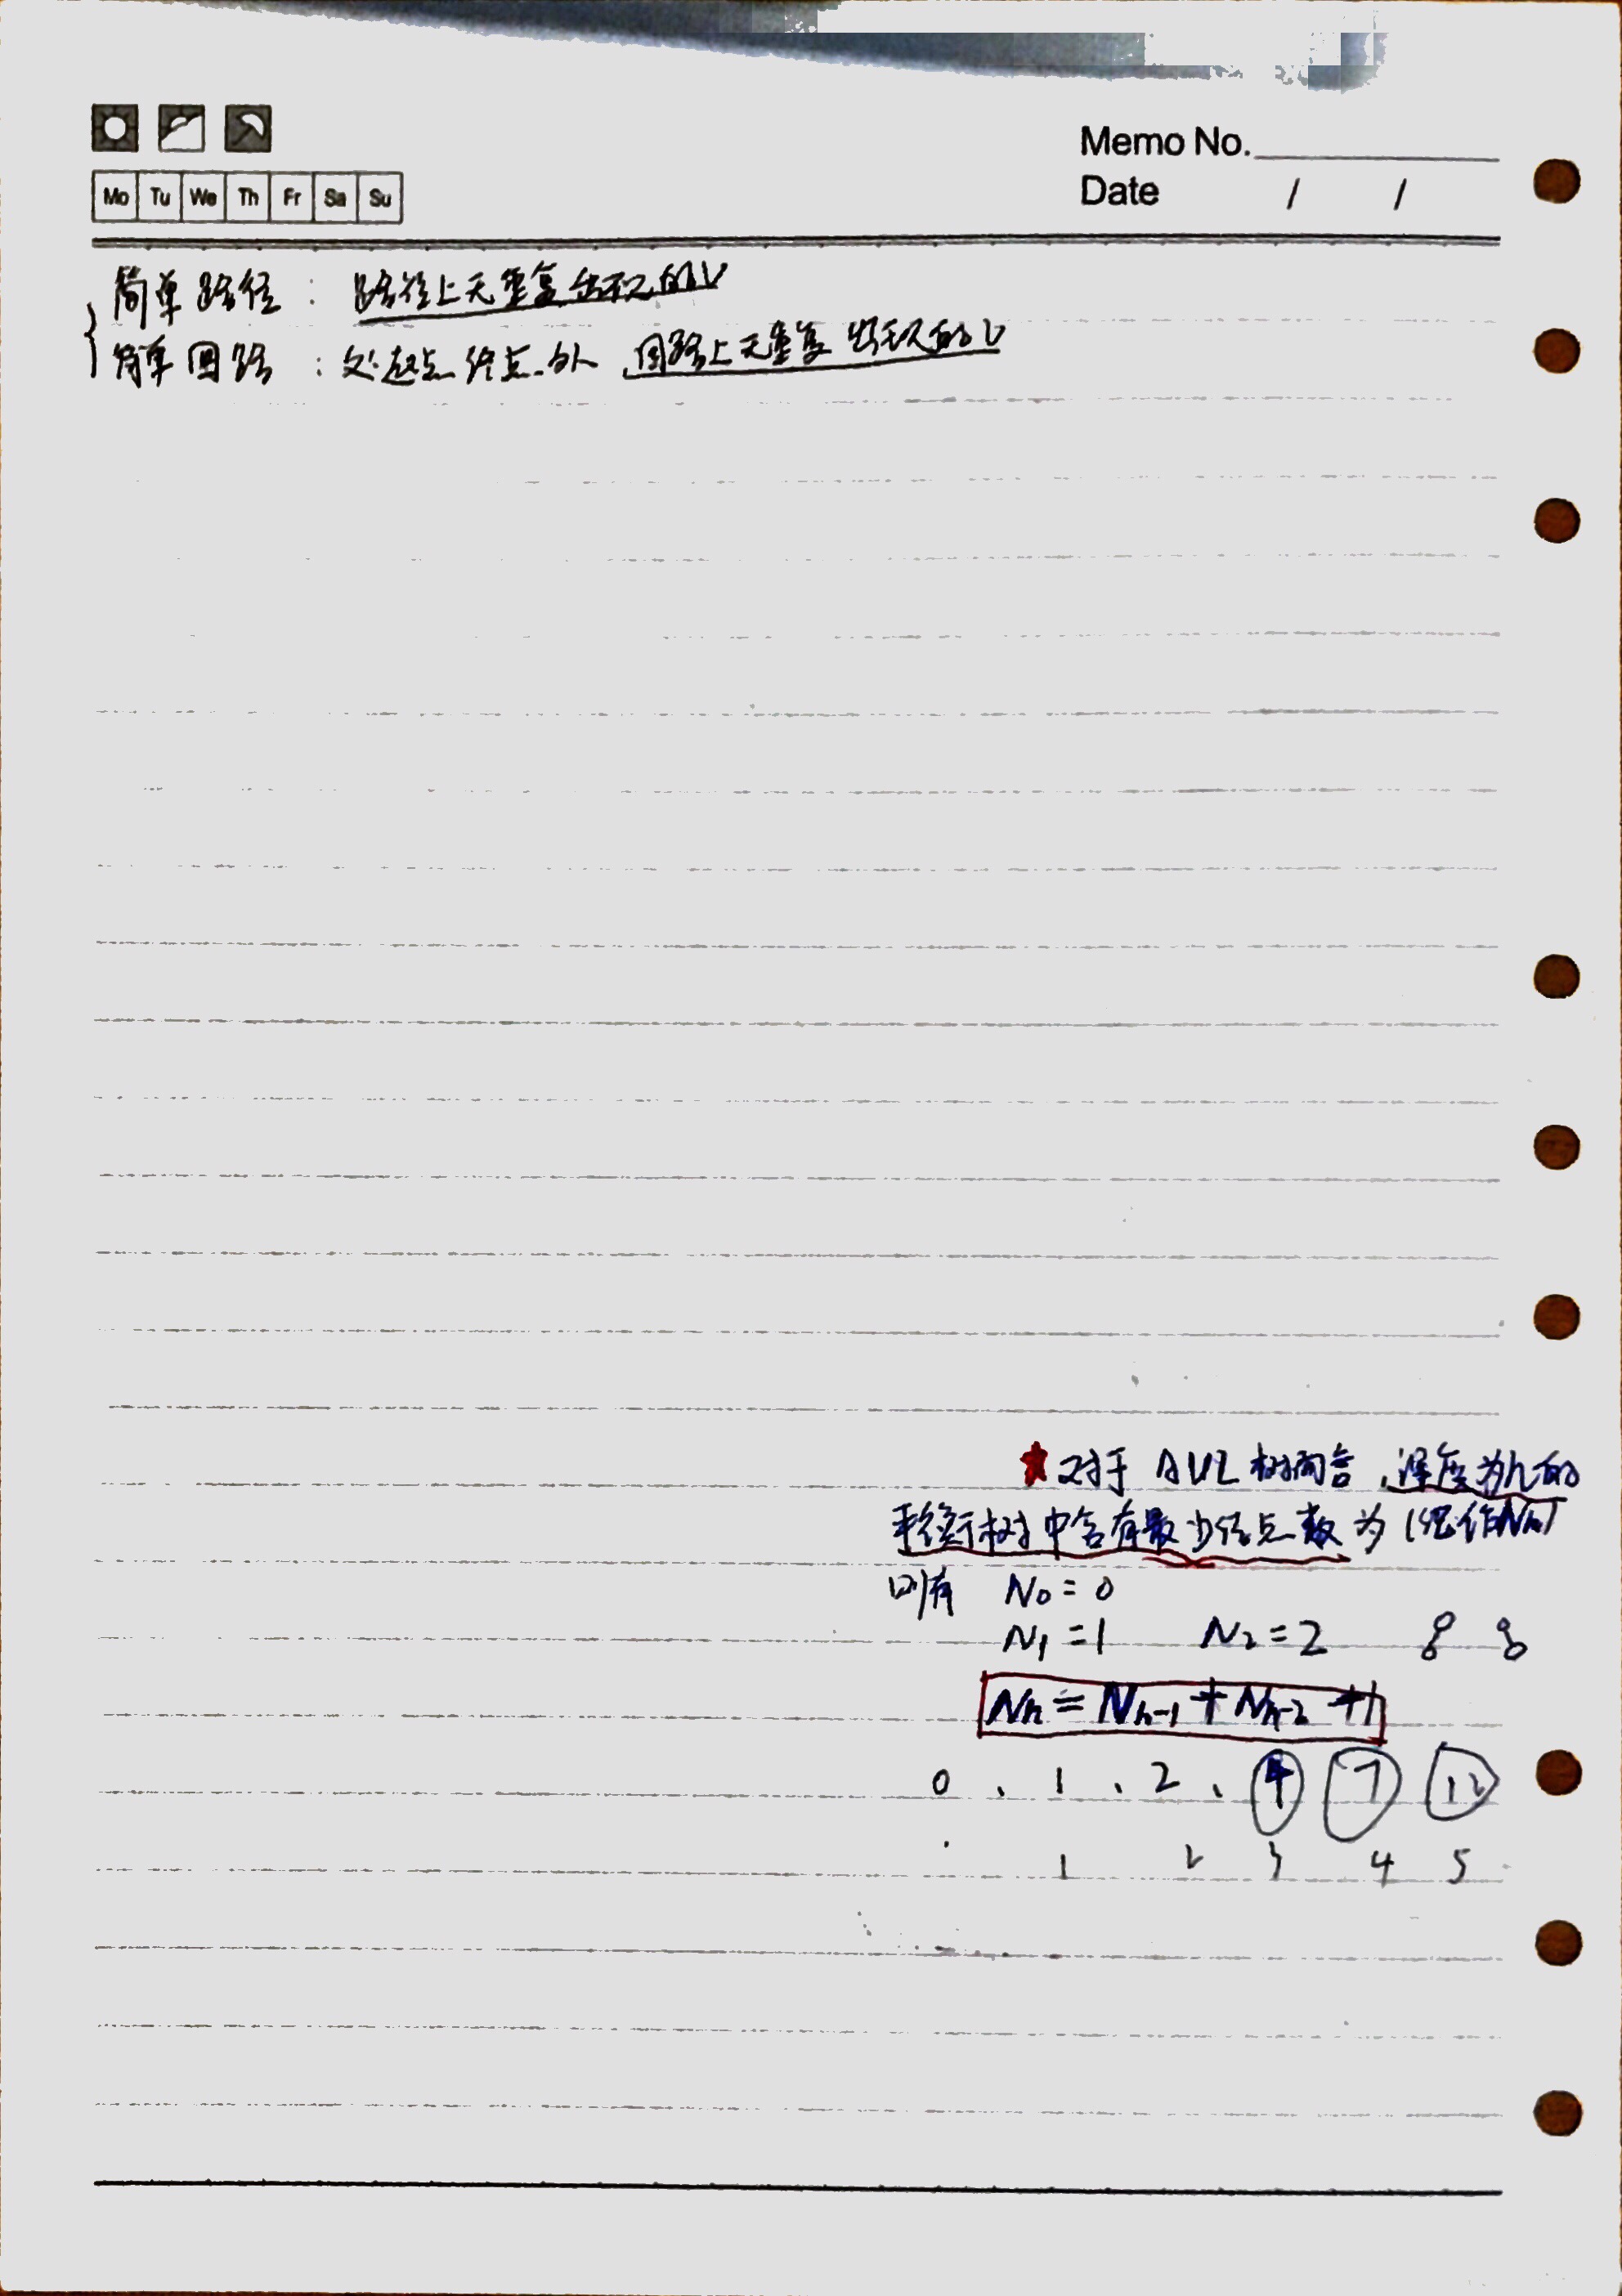 Memo No.
Mo Tu We Th Fr Sa Su
Date / /
简单路径：路径上无重复出现的V
简单回路：处起点终点外，回路上无重复出现的V
★对于AVL树而言，深度为h的
平衡树中含有最少结点数为（记作Nh）
则有 N₀=0
N₁=1 N₂=2
Nh=Nh-1+Nh-2+1
0 、 1 、 2 、 4 7 12
1 2 3 4 5